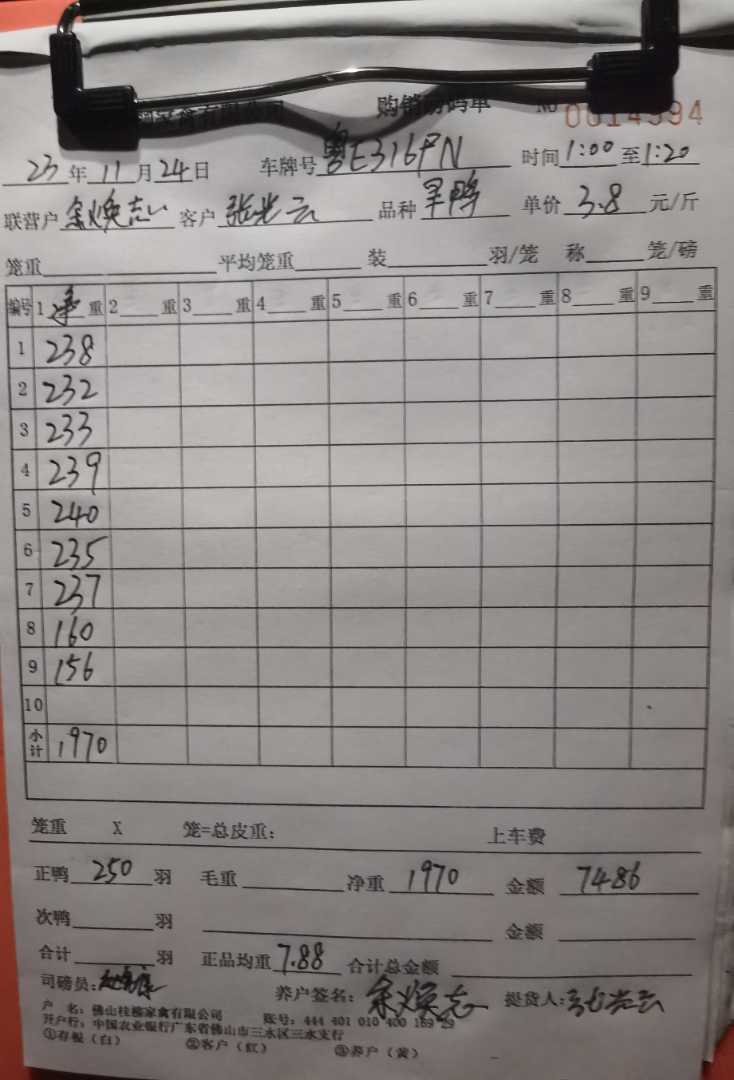 有限公司 购销磅码单 No 0014994
23年11月24日 车牌号粤E316PN 时间1:00至1:20
联营户余焕志 客户张光云 品种旱鸭 单价3.8元/斤
笼重 平均笼重 装 羽/笼 称 笼/磅
编号 1净重 2 重 3 重 4 重 5 重 6 重 7 重 8 重 9 重
1 238
2 232
3 233
4 239
5 240
6 235
7 237
8 160
9 156
10
小计 1970
笼重 X 笼=总皮重: 上车费
正鸭250羽 毛重 净重1970 金额7486
次鸭 羽 金额
合计 羽 正品均重7.88 合计总金额
司磅员: 养户签名:余焕志 提货人:张光云
户 名:佛山桂柳家禽有限公司 账号:444 401 010 400 169 29
开户行:中国农业银行广东省佛山市三水区三水支行
①存根(白) ②客户(红) ③养户(黄)